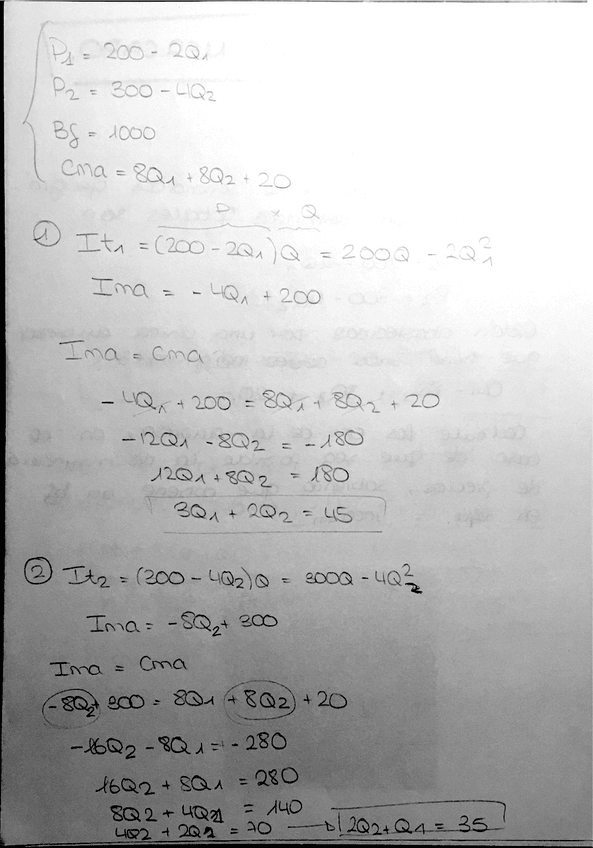 P1 = 200 - 2Q1
P2 = 300 - 4Q2
Bf = 1000
Cma = 8Q1 + 8Q2 + 20
P x Q
1 It1 = (200 - 2Q1)Q = 200Q - 2Q1²
Ima = -4Q1 + 200
Ima = Cma
-4Q1 + 200 = 8Q1 + 8Q2 + 20
-12Q1 - 8Q2 = -180
12Q1 + 8Q2 = 180
3Q1 + 2Q2 = 45
2 It2 = (300 - 4Q2)Q = 300Q - 4Q2²
Ima = -8Q2 + 300
Ima = Cma
-8Q2 + 300 = 8Q1 + 8Q2 + 20
-16Q2 - 8Q1 = -280
16Q2 + 8Q1 = 280
8Q2 + 4Q1 = 140
4Q2 + 2Q1 = 70 → 2Q2 + Q1 = 35